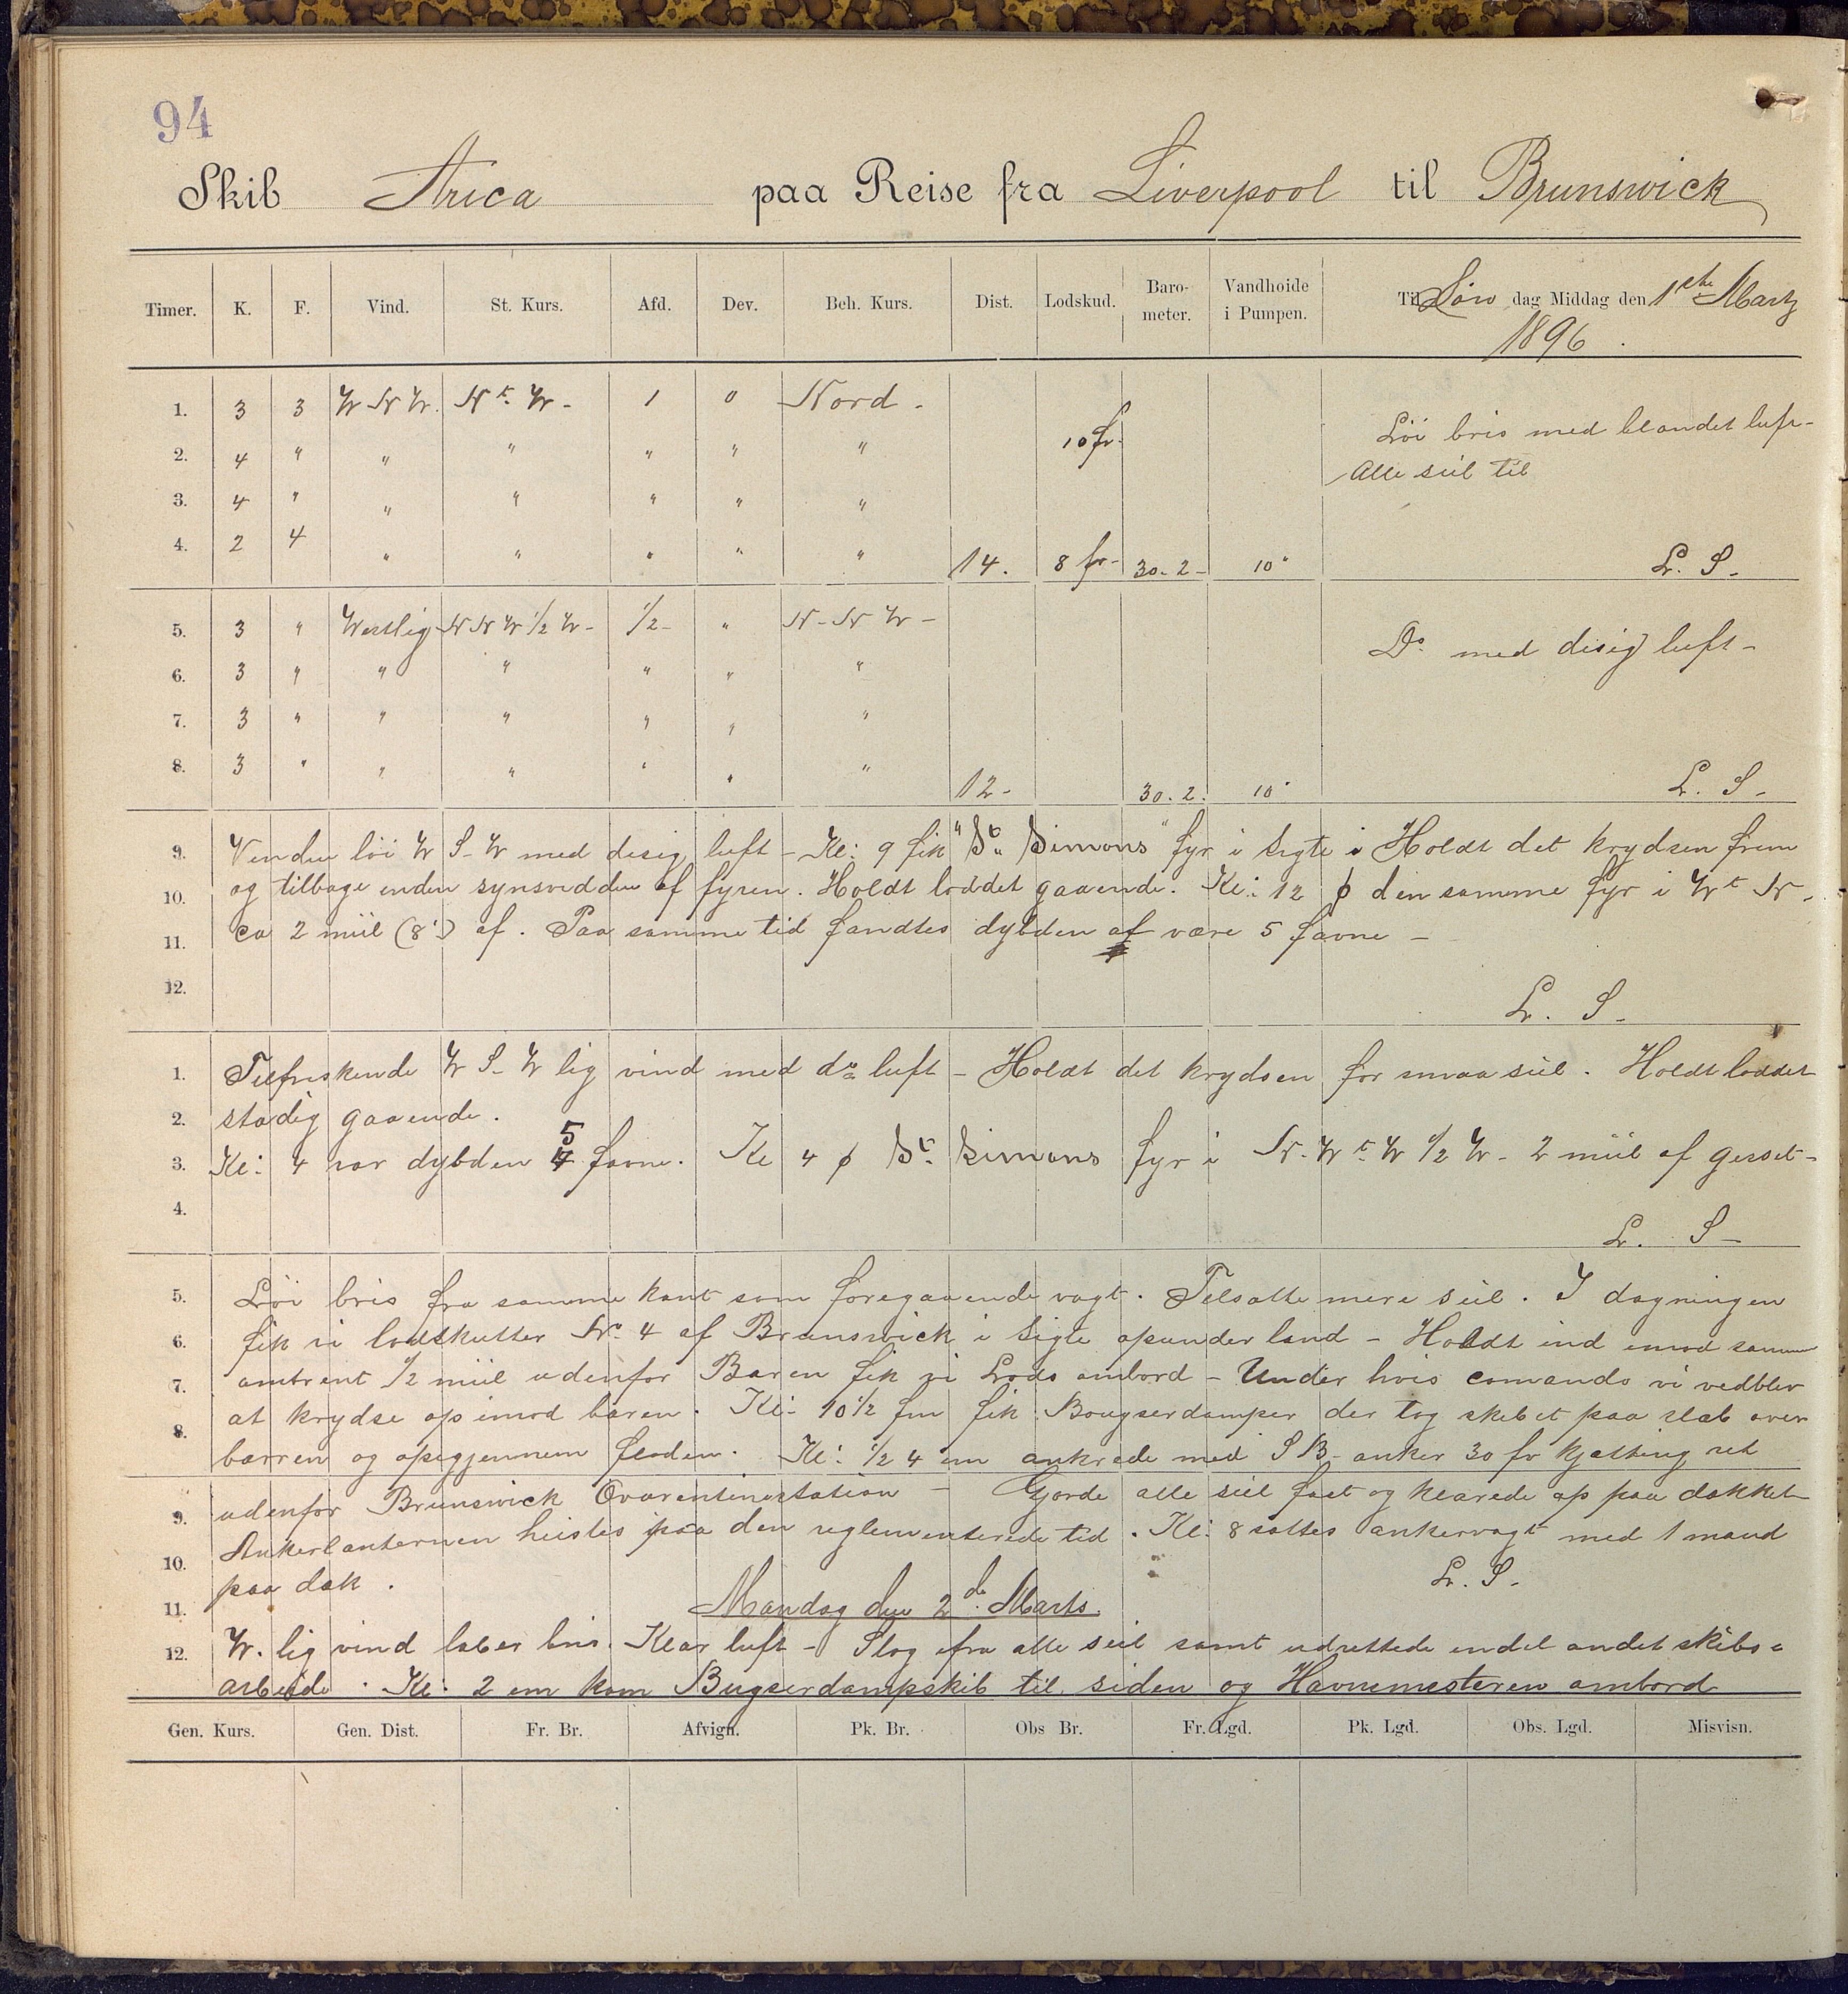 94
Skib Arica paa Reise fra Liverpool til Brunswick
Timer. K. F. Vind. St. Kurs. Afd. Dev. Beh. Kurs. Dist. Lodskud. Baro-meter. Vandhoide i Pumpen. Til Søn dag Middag den 1ste Martz
1896.
1. 3 3 W N W. N t. W - 1 0 Nord -
Löi bris med blandet luft -
2. 4 " " " " " " 10 fv.
Alle siil til
3. 4 " " " " " "
4. 2 4 " " " " " 14. 8 fv - 30-2- 10" L. S -
5. 3 " Westlig N N W 1/2 W - 1/2 - " N - N W -
Do. med disig luft -
6. 3 " " " " " "
7. 3 " " " " " "
8. 3 " " " " " " 12 - 30.2. 10" L. S -
9. Vinden löi W S - W med disig luft - Kl: 9 fik "St. Simons" fyr i Sigte i Holdt det krydsen frem
10. og tilbage enden synsvidden af fyren. Holdt loddet gaaende. Kl: 12 ϕ den samme fyr i W t N -
11. ca 2 miil (8') af. Paa samme tid fandtes dybden at være 5 favne -
12. L. S -
1. Tilfriskende W S - W lig vind med do luft - Holdt det krydsen for smaa siil. Holdt loddet
2. stadig gaaende.
3. Kl: 4 var dybden 5 favne. Kl 4 ϕ St. Simons fyr i N. W t. W 1/2 W - 2 miil af gisset -
4. L. S -
5. Löi bris fra samme kant som foregaaende vagt. Tilsatte mere siil. I dagningen
6. fik vi lodskutter No. 4 af Brunswick i Sigte opunder land - Holdt ind imod samme
7. omtrent 1/2 miil udenfor Baren fik vi Lods ombord - Under hvis comando vi vedblev
8. at krydse op imod baren. Kl: 10 1/2 fm fik Bougserdamper der tog skibet paa slæb over
barren og opigjennem floden. Kl: 1/2 4 em ankrede med S B - anker 30 fv kjætting ret
9. udenfor Brunswick Qvarentinestation - Gjorde alle siil fast og klarede op paa dækket
10. Ankerlanternen heistes paa den reglementerede tid. Kl: 8 sattes ankervagt med 1 mand
paa dæk. L. S -
11. Mandag den 2d. Marts.
12. W. lig vind laber bris. Klar luft - Slog ifra alle siil samt udrettede endel andet skibs-
arbeide. Kl: 2 em kom Bugserdampskib til siden og Havnemesteren ombord
Gen. Kurs. Gen. Dist. Fr. Br. Afvign. Pk. Br. Obs Br. Fr. Lgd. Pk. Lgd. Obs. Lgd. Misvisn.